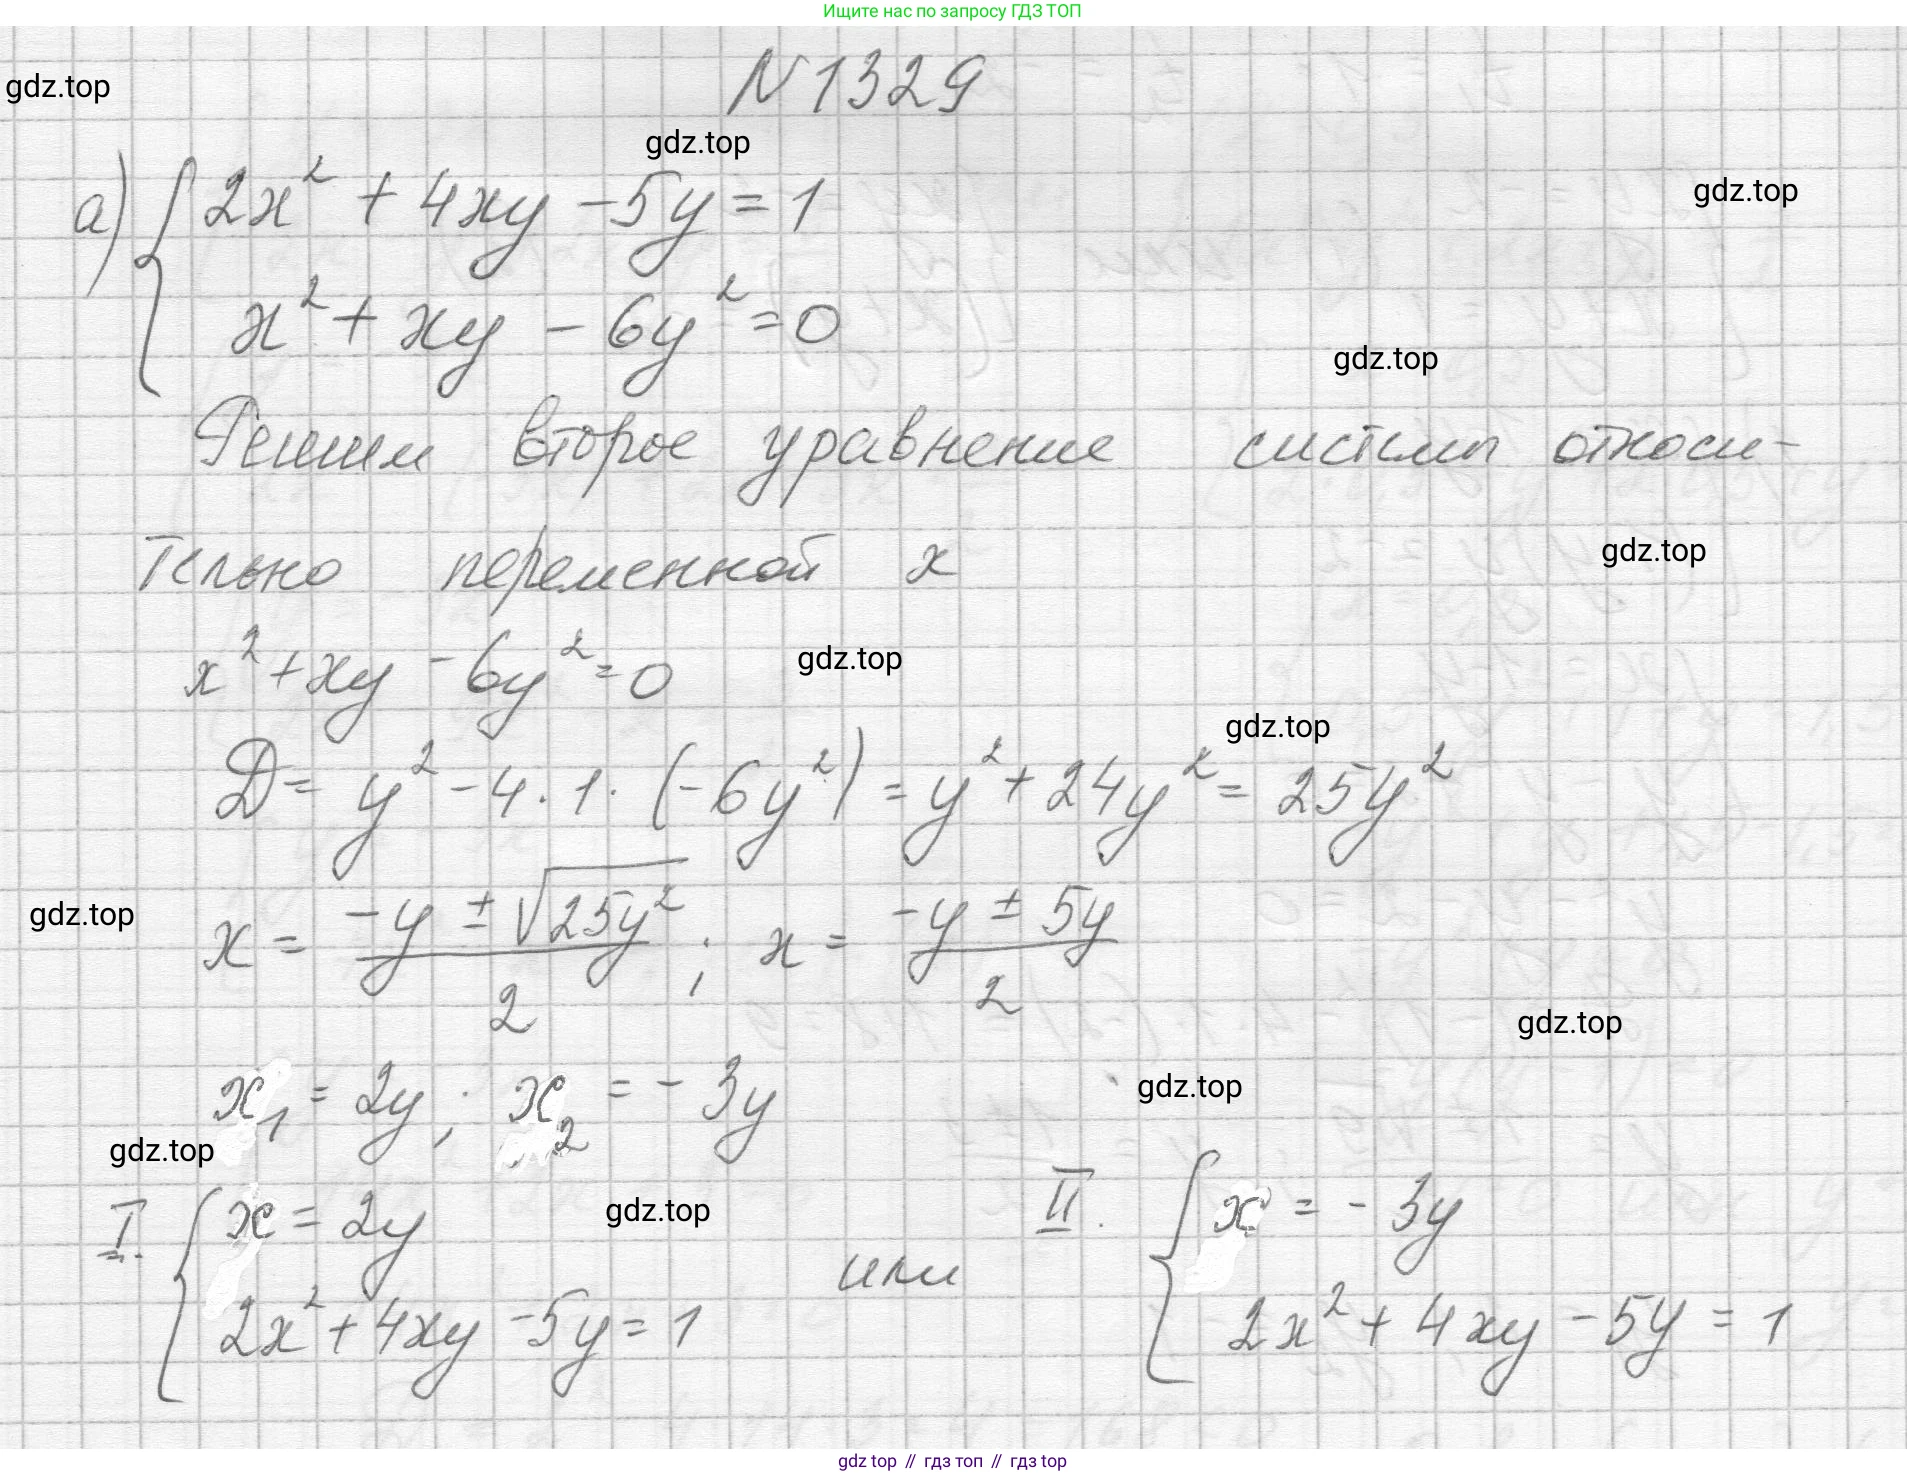 Ищите нас по запросу ГДЗ ТОП
N 1329
gdz.top
gdz.top
gdz.top
а) { 2x² + 4xy - 5y = 1
x² + xy - 6y² = 0
gdz.top
Решим второе уравнение системы относи-
тельно переменной x
gdz.top
x² + xy - 6y² = 0
gdz.top
gdz.top
D = y² - 4 · 1 · (-6y²) = y² + 24y² = 25y²
gdz.top
x = (-y ± √25y²)/2 ; x = (-y ± 5y)/2
gdz.top
x₁ = 2y ; x₂ = - 3y
gdz.top
gdz.top
gdz.top
I. { x = 2y
2x² + 4xy - 5y = 1
или
II. { x = - 3y
2x² + 4xy - 5y = 1
gdz top // гдз топ // гдз top